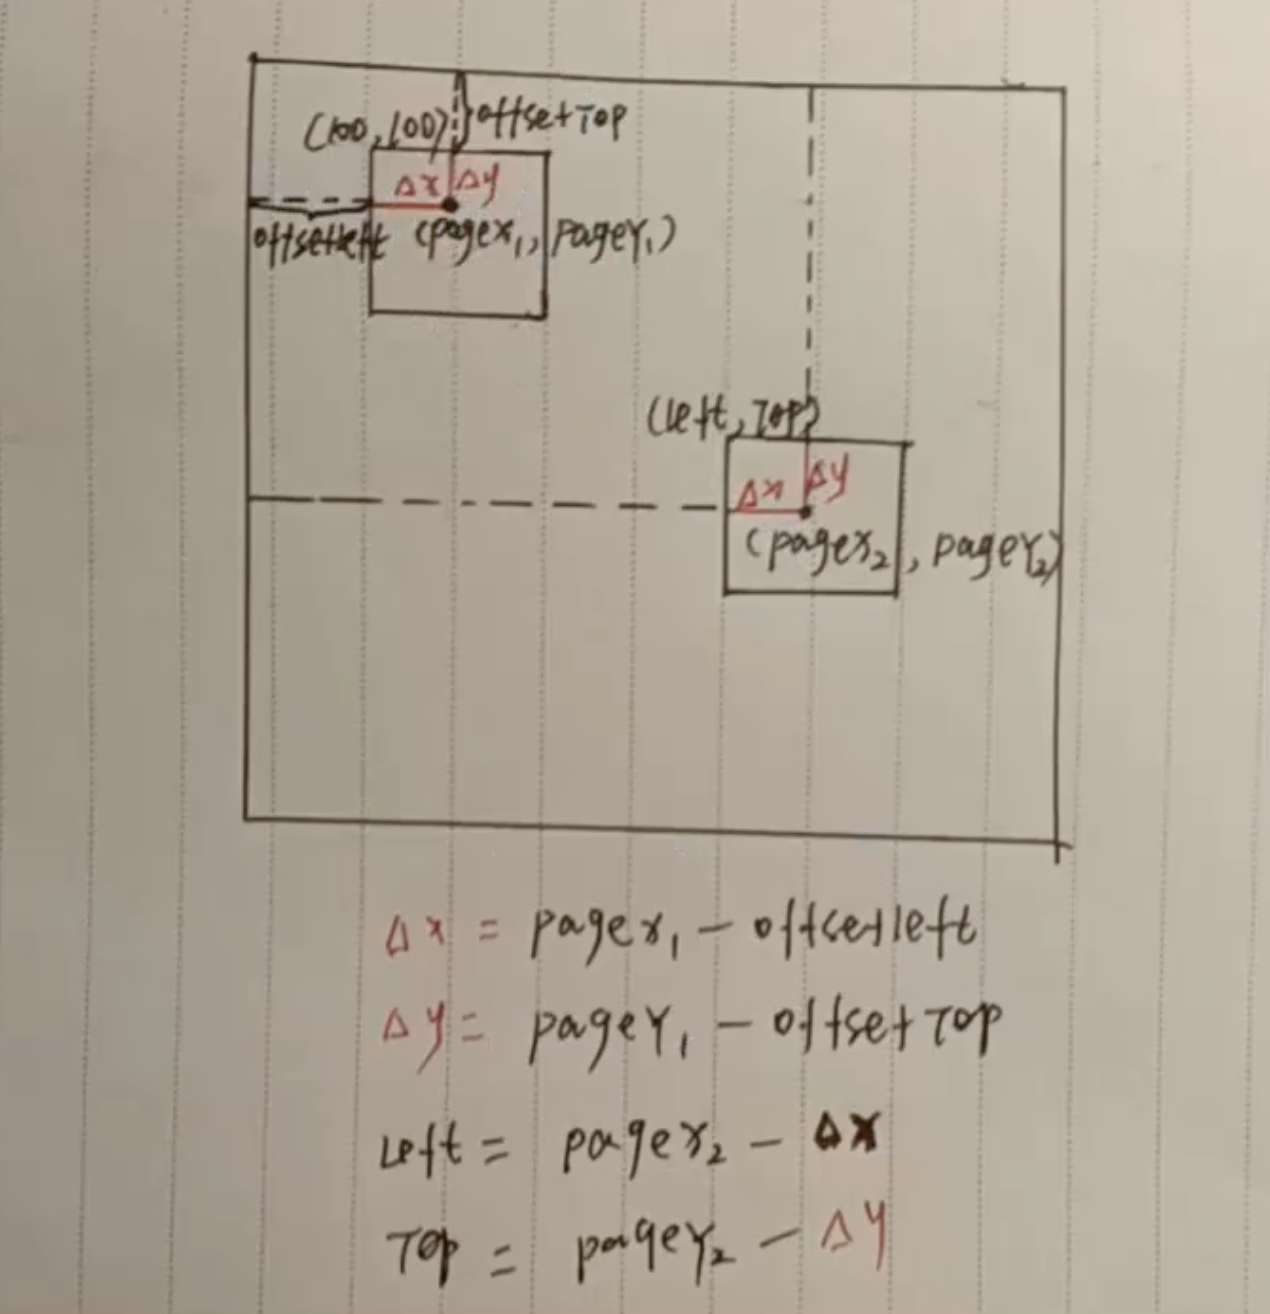 (100,100) offsetTop
Δx Δy
offsetleft (pagex₁, pageY₁)
(left, Top)
Δx Δy
(pagex₂, pageY₂)
Δx = pagex₁ - offsetleft
Δy = pageY₁ - offsetTop
Left = pagex₂ - Δx
Top = pageY₂ - Δy